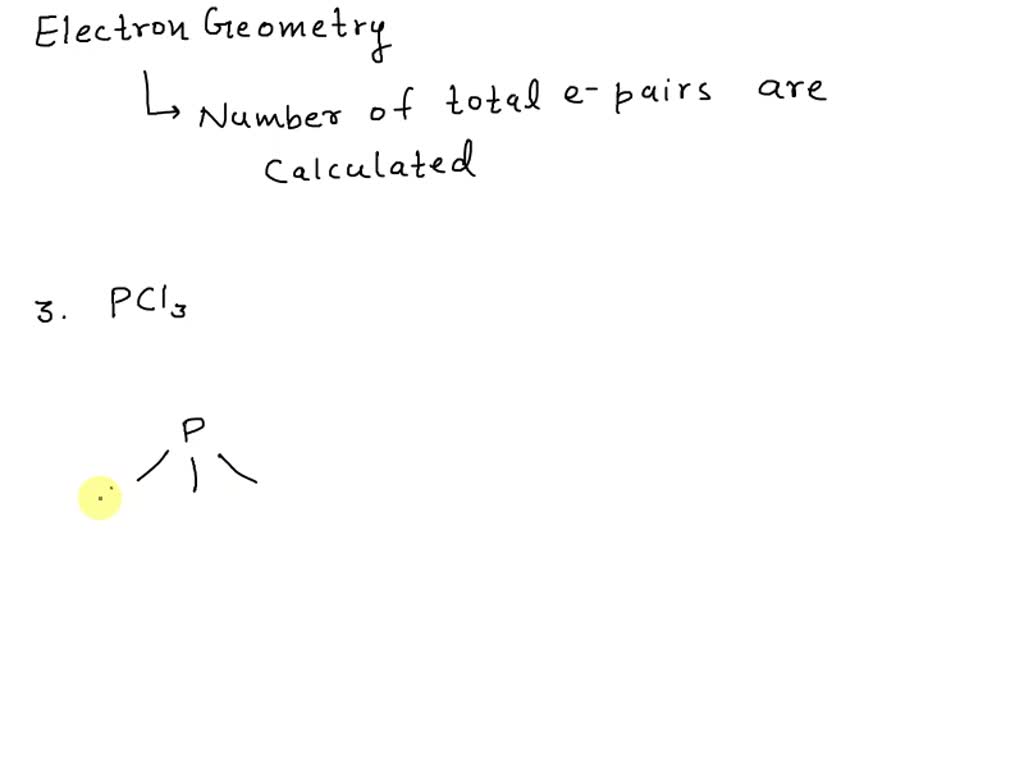 Electron Geometry
↳ Number of total e- pairs are
Calculated
3. PCl₃
P